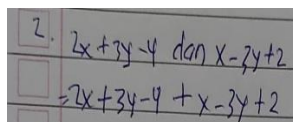 2. 2x+3y-4 dan x-3y+2
=2x+3y-4+x-3y+2